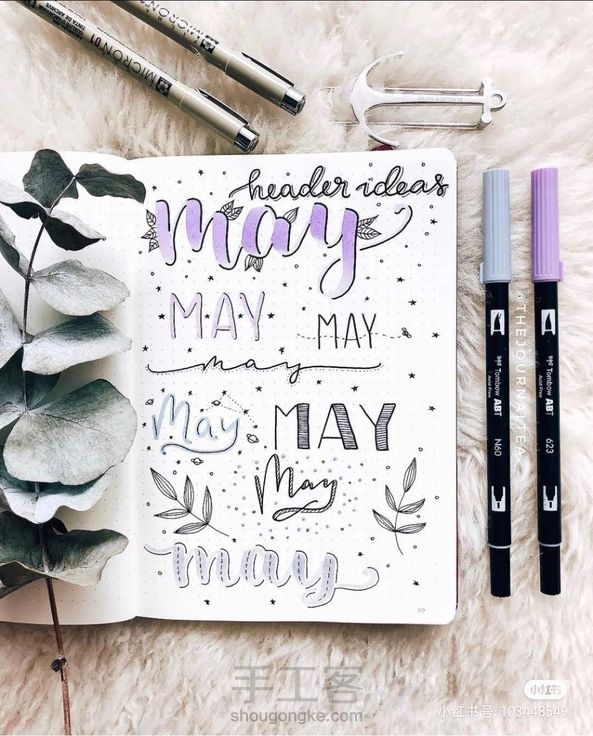 MICRON
MICRON 01
header ideas
may
MAY
MAY
may
May
MAY
May
may
39
Tombow ABT
Acid Free
N60
Tombow ABT
Acid Free
623
@THEJOURNALTEA
小红书
小红书号: 103448549
手工客
shougongke.com